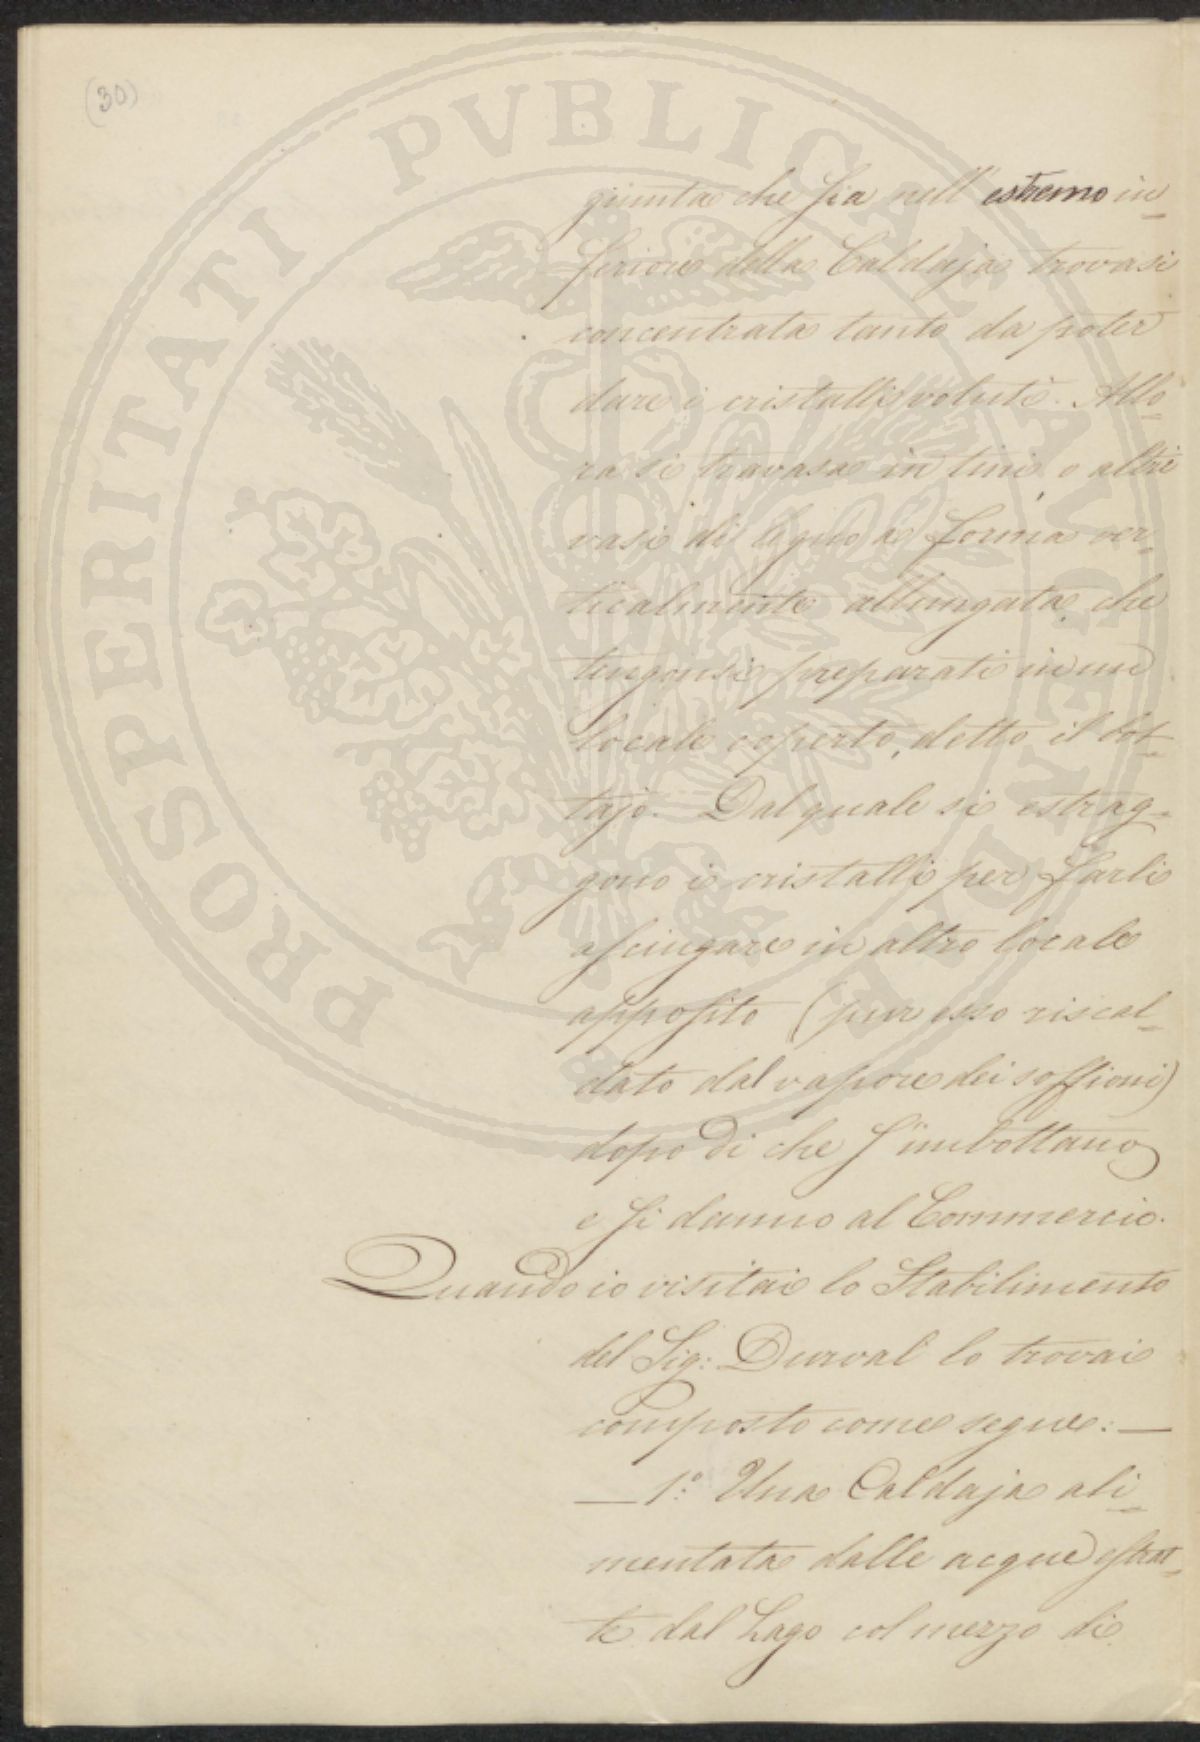 (30)
giunta che sia nell' estremo in=
feriore della Caldaja trovasi
concentrata tanto da poter
dare i cristalli voluti. Allo=
ra si travasa in tini, o altri
vasi di legno a forma ver=
ticalmente allungata, che
tengonsi preparati in un
locale coperto, detto il bot=
tajo. Dal quale si estrag=
gono i cristalli per farli
asciugare in altro locale
apposito (pur esso riscal=
dato dal vapore dei soffioni)
dopo di che s'imbottano
e si danno al Commercio.
Quando io visitai lo Stabilimento
del Sig: Durval lo trovai
composto come segue: —
— 1.° Una Caldaja ali=
mentata dalle acque estrat=
te dal Lago col mezzo di
PROSPERITATI PVBLICAE AVGENDAE